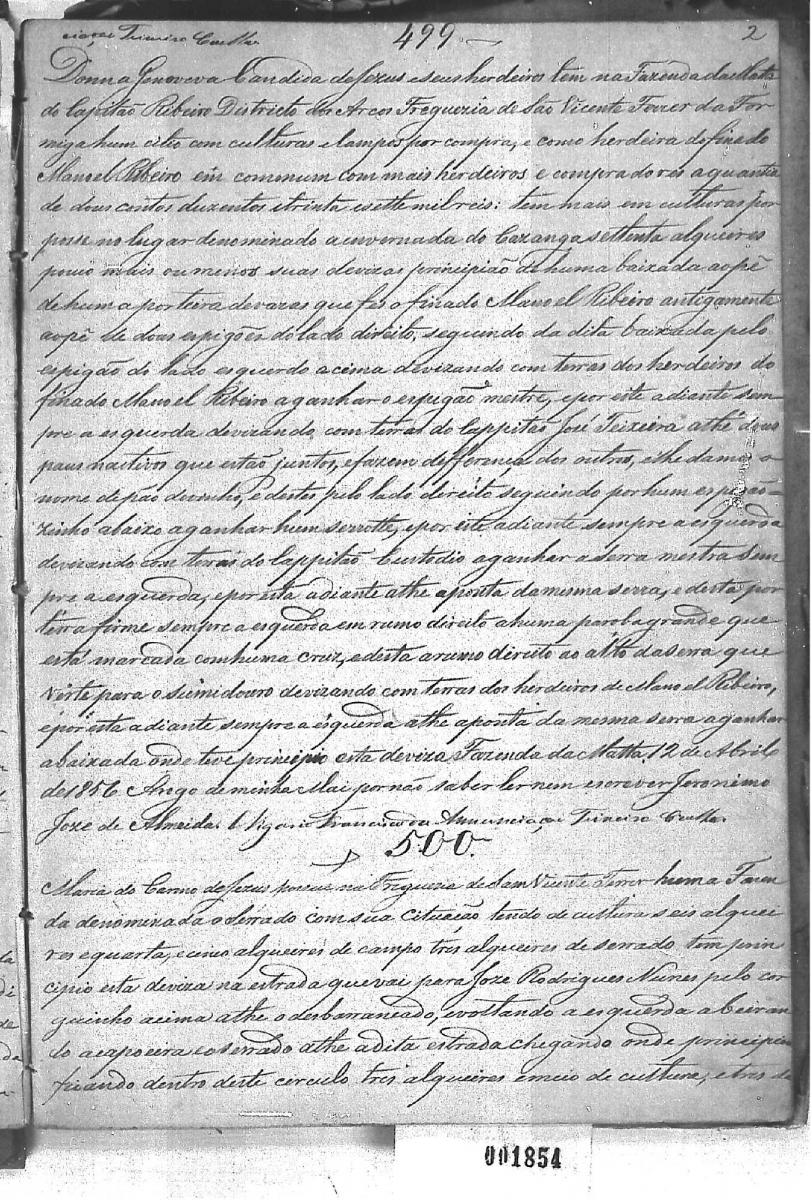 ciaçao Teixeira Coelho
499
2
Donna Genoveva Candida de Jezus e seus herdeiros tem na Fazenda da Matta
do Capitão Ribeiro Districto dos Arcos Freguezia de São Vicente Ferrer da For
miga hum citio com culturas e campos por compra, e como herdeira do finado
Manoel Ribeiro em commum com mais herdeiros e compradores a quantia
de dous contos duzentos e trinta e sette mil reis: tem mais em culturas por
posse no lugar denominado a envernada do Cazanga settenta alqueires
pouco mais ou menos suas devizas principião de huma baixada ao pê
de huma porteira de varas que fes o finado Manoel Ribeiro antigamente
ao pê de dous espigões do lado direito, seguindo da dita baixada pelo
espigão do lado esquerdo acima devizando com terras dos herdeiros do
finado Manoel Ribeiro a ganhar o espigão mestre, e por este adiante sem
pre a esquerda devizando com terras do Cappitão José Teixeira athé dous
paus nactivos que estão juntos, e fazem defferença dos outros, e lhe damos o
nome de páo de vinho, e destes pelo lado direito seguindo por hum espigão
zinho abaixo a ganhar hum serrotte, e por este adiante sempre a esquerda
devizando com terras do Cappitão Custodio a ganhar a serra mestra sem
pre a esquerda, e por esta adiante athe a ponta da mesma serra, e desta por
terra firme sempre a esquerda em rumo direito a huma paroba grande que
está marcada com huma cruz, e desta a rumo direito ao alto da serra que
verte para o sumidouro devizando com terras dos herdeiros de Manoel Ribeiro,
e por esta adiante sempre a esquerda athe a ponta da mesma serra a ganhar
a baixada onde teve principio esta deviza Fazenda da Matta 12 de Abril
de 1856 Arogo de minha Mai por não saber ler nem escrever Jeronimo
Joze de Almeida. O Vigario Francisco da Annunciaçao Teixeira Coelho.
500.
Maria do Carmo de Jezus possue na Freguezia de Sam Vicente Ferrer huma Fazen
da denominada o Serrado com sua cituação tendo de cultura seis alquei
res e quarta, e cinco alqueires de campo tres alqueires de serrado tem prin
cipio esta deviza na estrada que vai para Joze Rodrigues Nunes pelo cor
guinho acima athe o desbarrancado, e voltando a esquerda a beiran
do a capoeira e o serrado athe a dita estrada chegando onde principiou
ficando dentro deste circulo tres alqueires e meio de cultura, e tres de
001854